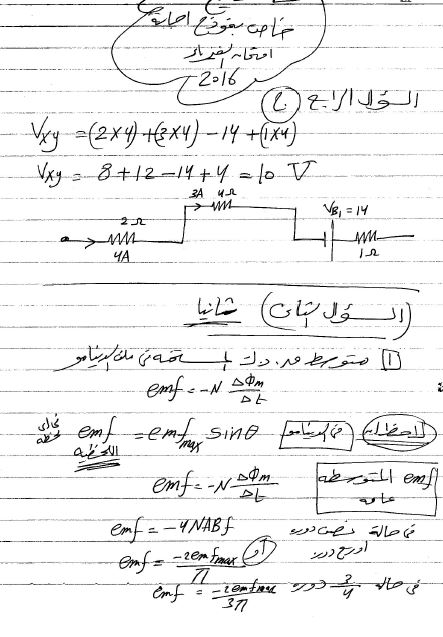 خاص بنموذج اجابة
امتحان الفيزياء
2016
السؤال الرابع
Vxy = (2x4) + (3x4) - 14 + (1x4)
Vxy = 8 + 12 - 14 + 4 = 10 V
3A 4Ω
2Ω VB1 = 14
4A 1Ω
(السؤال الثاني) ثانيا
1 متوسط ق.د.ك المستحثة في ملف الدينامو
emf = -N ΔΦm/Δt
ملاحظات في الدينامو emf = emfmax sinθ في اي لحظة
اللحظية
emf المتوسطة عامة emf = -N ΔΦm/Δt
في حالة نصف دورة او ربع دورة emf = -4NABf
او emf = -2emfmax/π
في حالة 3/4 دورة emf = -2emfmax/3π